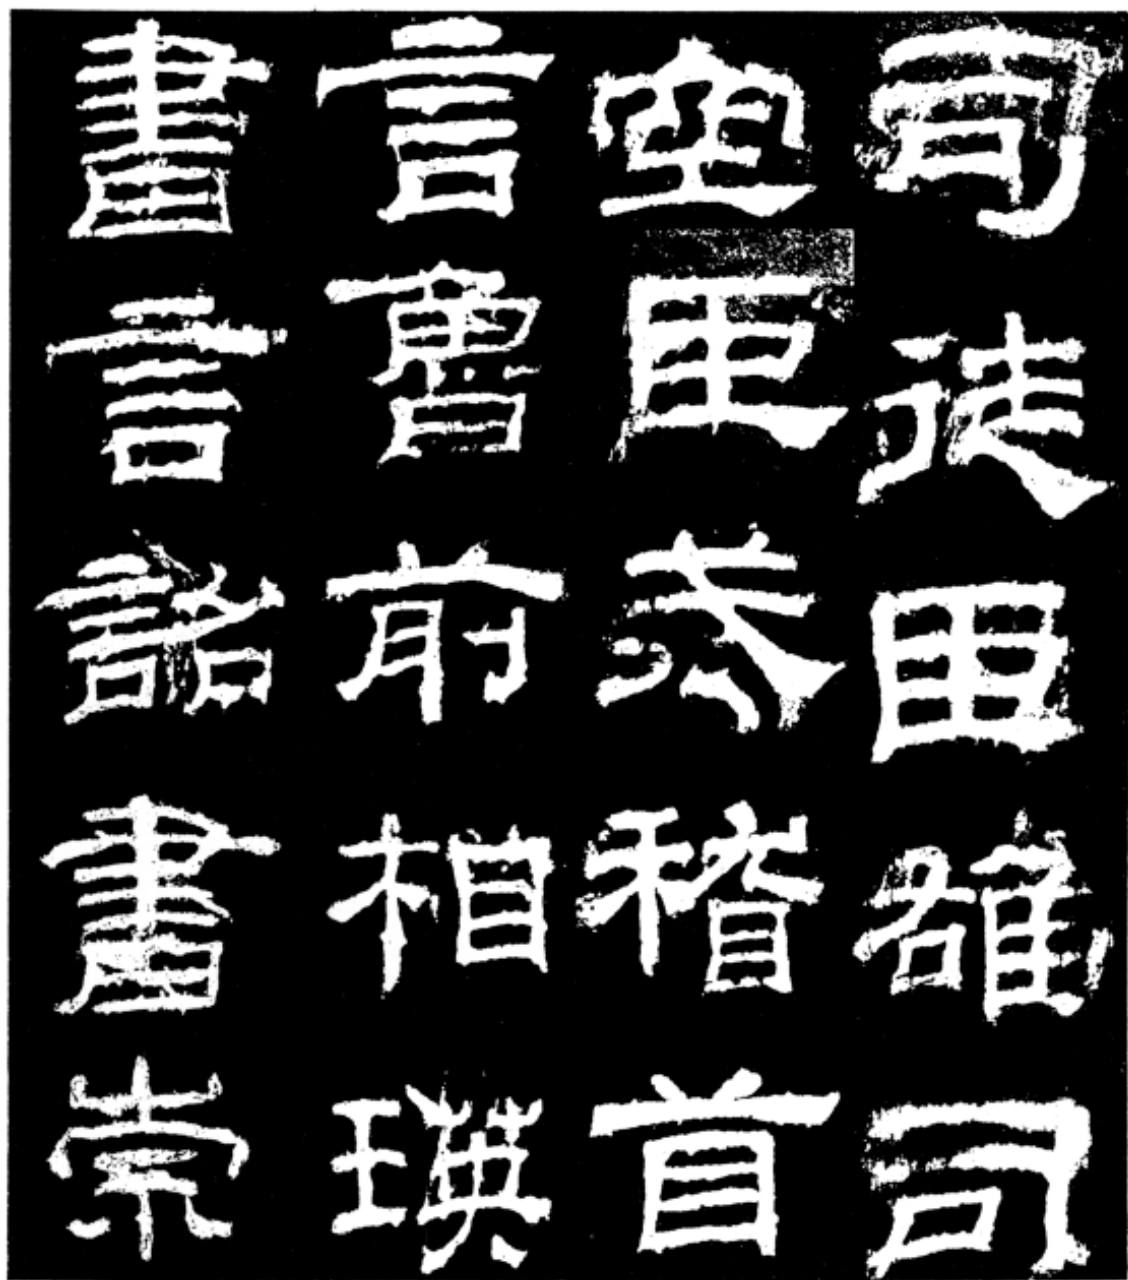 司徒臣雄司
空臣戒稽首
言魯前相瑛
書言詔書崇